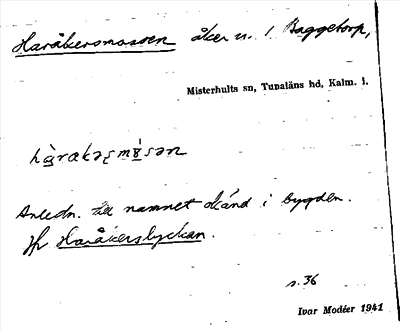 Haråkersmossen åker n. 1 Baggetorp,
Misterhults sn, Tunaläns hd, Kalm. l.
Anledn. till namnet okänd i bygden.
Jfr Haråkerslyckan.
s. 36
Ivar Modéer 1941